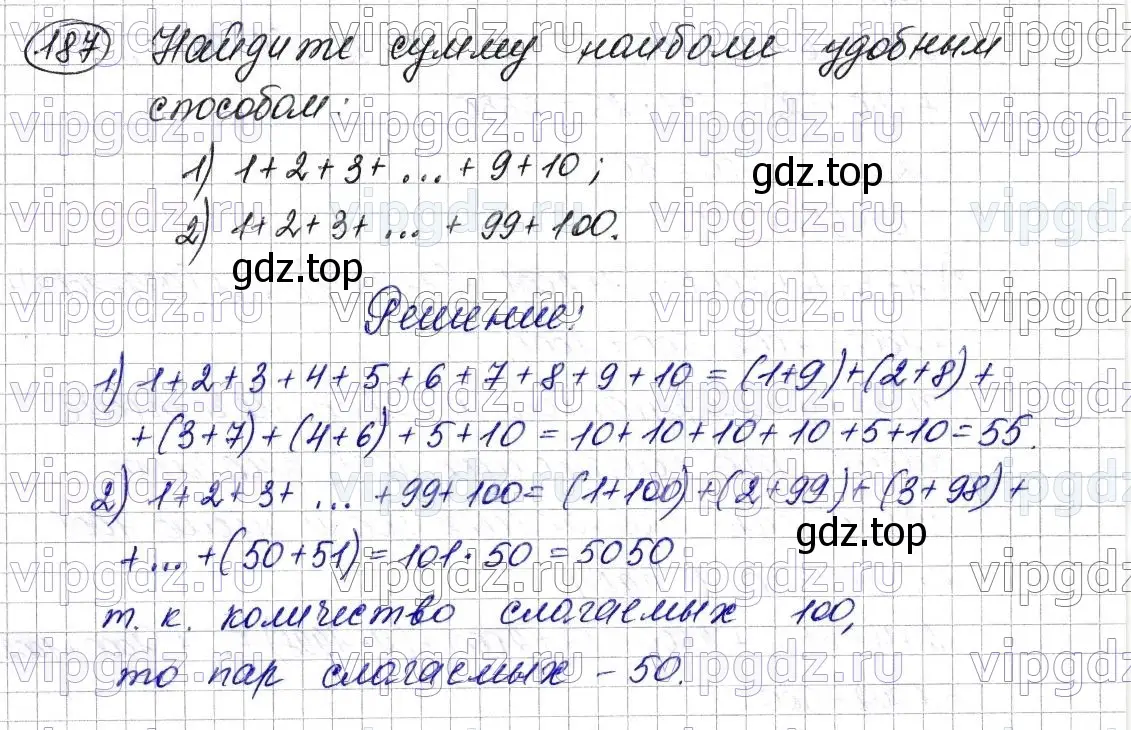 187 Найдите сумму наиболе удобным
способом:
1) 1+2+3+...+9+10;
2) 1+2+3+...+99+100.
Решение:
1) 1+2+3+4+5+6+7+8+9+10=(1+9)+(2+8)+
+(3+7)+(4+6)+5+10=10+10+10+10+5+10=55.
2) 1+2+3+...+99+100=(1+100)+(2+99)+(3+98)+
+...+(50+51)=101·50=5050
т.к. количество слагаемых 100,
то пар слагаемых – 50.
gdz.top
gdz.top
gdz.top
vipgdz.ru